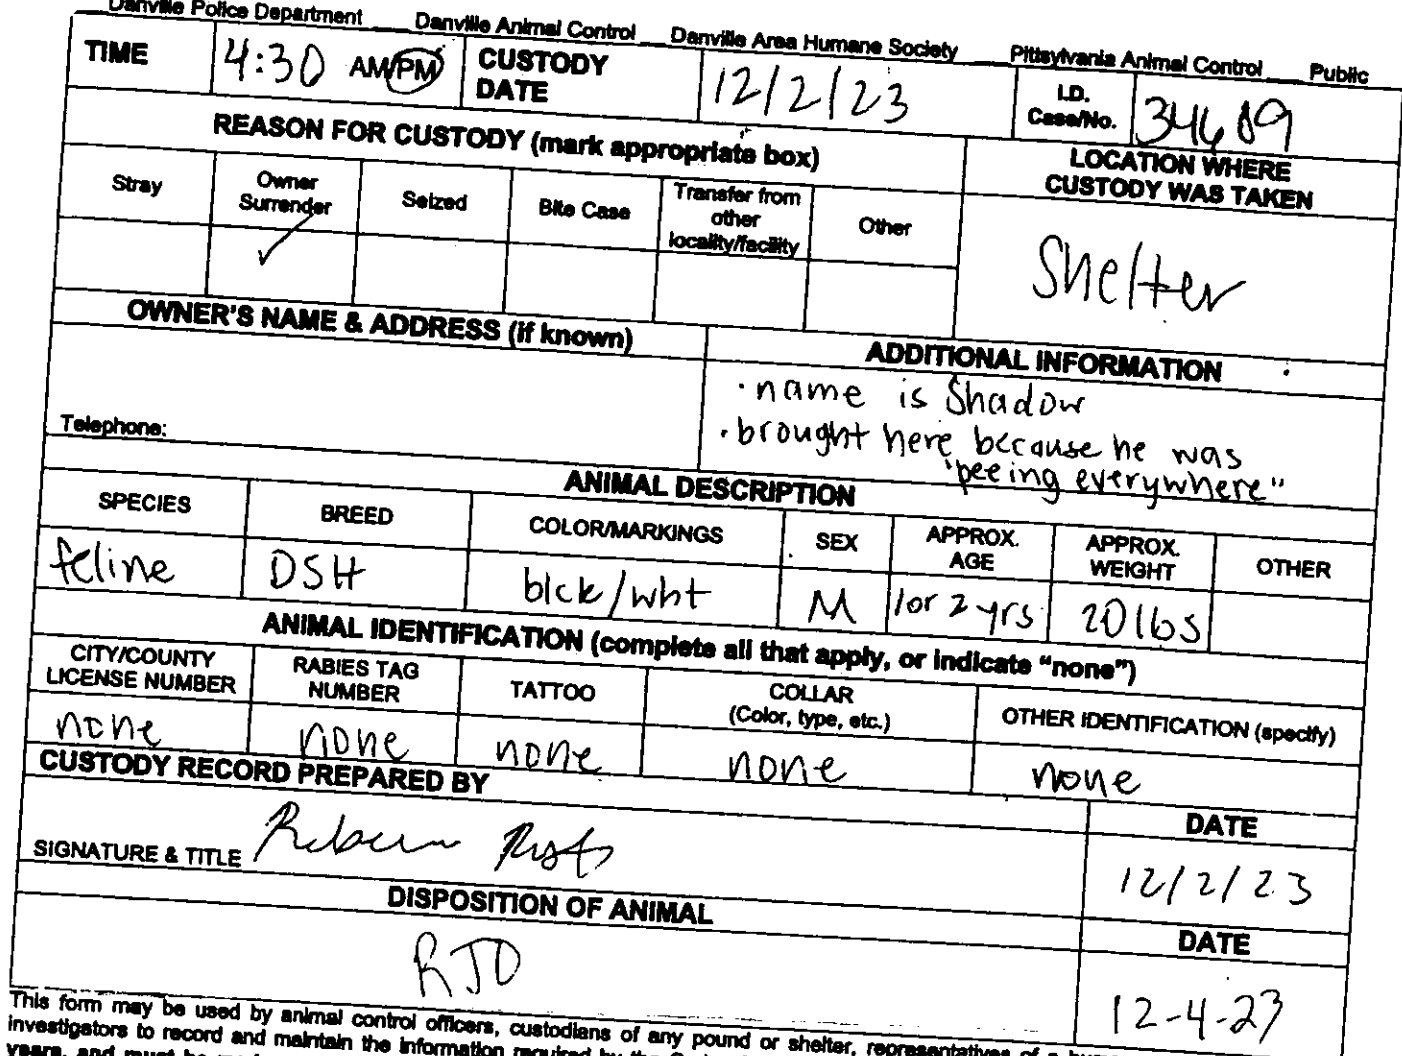 Danville Police Department ___ Danville Animal Control ___ Danville Area Humane Society ___ Pittsylvania Animal Control ___ Public
TIME 4:30 AM/PM CUSTODY DATE 12/2/23 I.D. Case/No. 34689
REASON FOR CUSTODY (mark appropriate box)
LOCATION WHERE CUSTODY WAS TAKEN
Stray
Owner Surrender ✓
Seized
Bite Case
Transfer from other locality/facility
Other
Shelter
OWNER'S NAME & ADDRESS (if known)
ADDITIONAL INFORMATION
· name is Shadow
· brought here because he was
"peeing everywhere"
Telephone:
ANIMAL DESCRIPTION
SPECIES BREED COLOR/MARKINGS SEX APPROX. AGE APPROX. WEIGHT OTHER
feline DSH blck/wht M 1 or 2 yrs 20 lbs
ANIMAL IDENTIFICATION (complete all that apply, or indicate "none")
CITY/COUNTY LICENSE NUMBER RABIES TAG NUMBER TATTOO COLLAR (Color, type, etc.) OTHER IDENTIFICATION (specify)
none none none none none
CUSTODY RECORD PREPARED BY
DATE
SIGNATURE & TITLE
12/2/23
DISPOSITION OF ANIMAL
DATE
RTO
12-4-23
This form may be used by animal control officers, custodians of any pound or shelter, representatives of a
investigators to record and maintain the information required by the
years, and must be